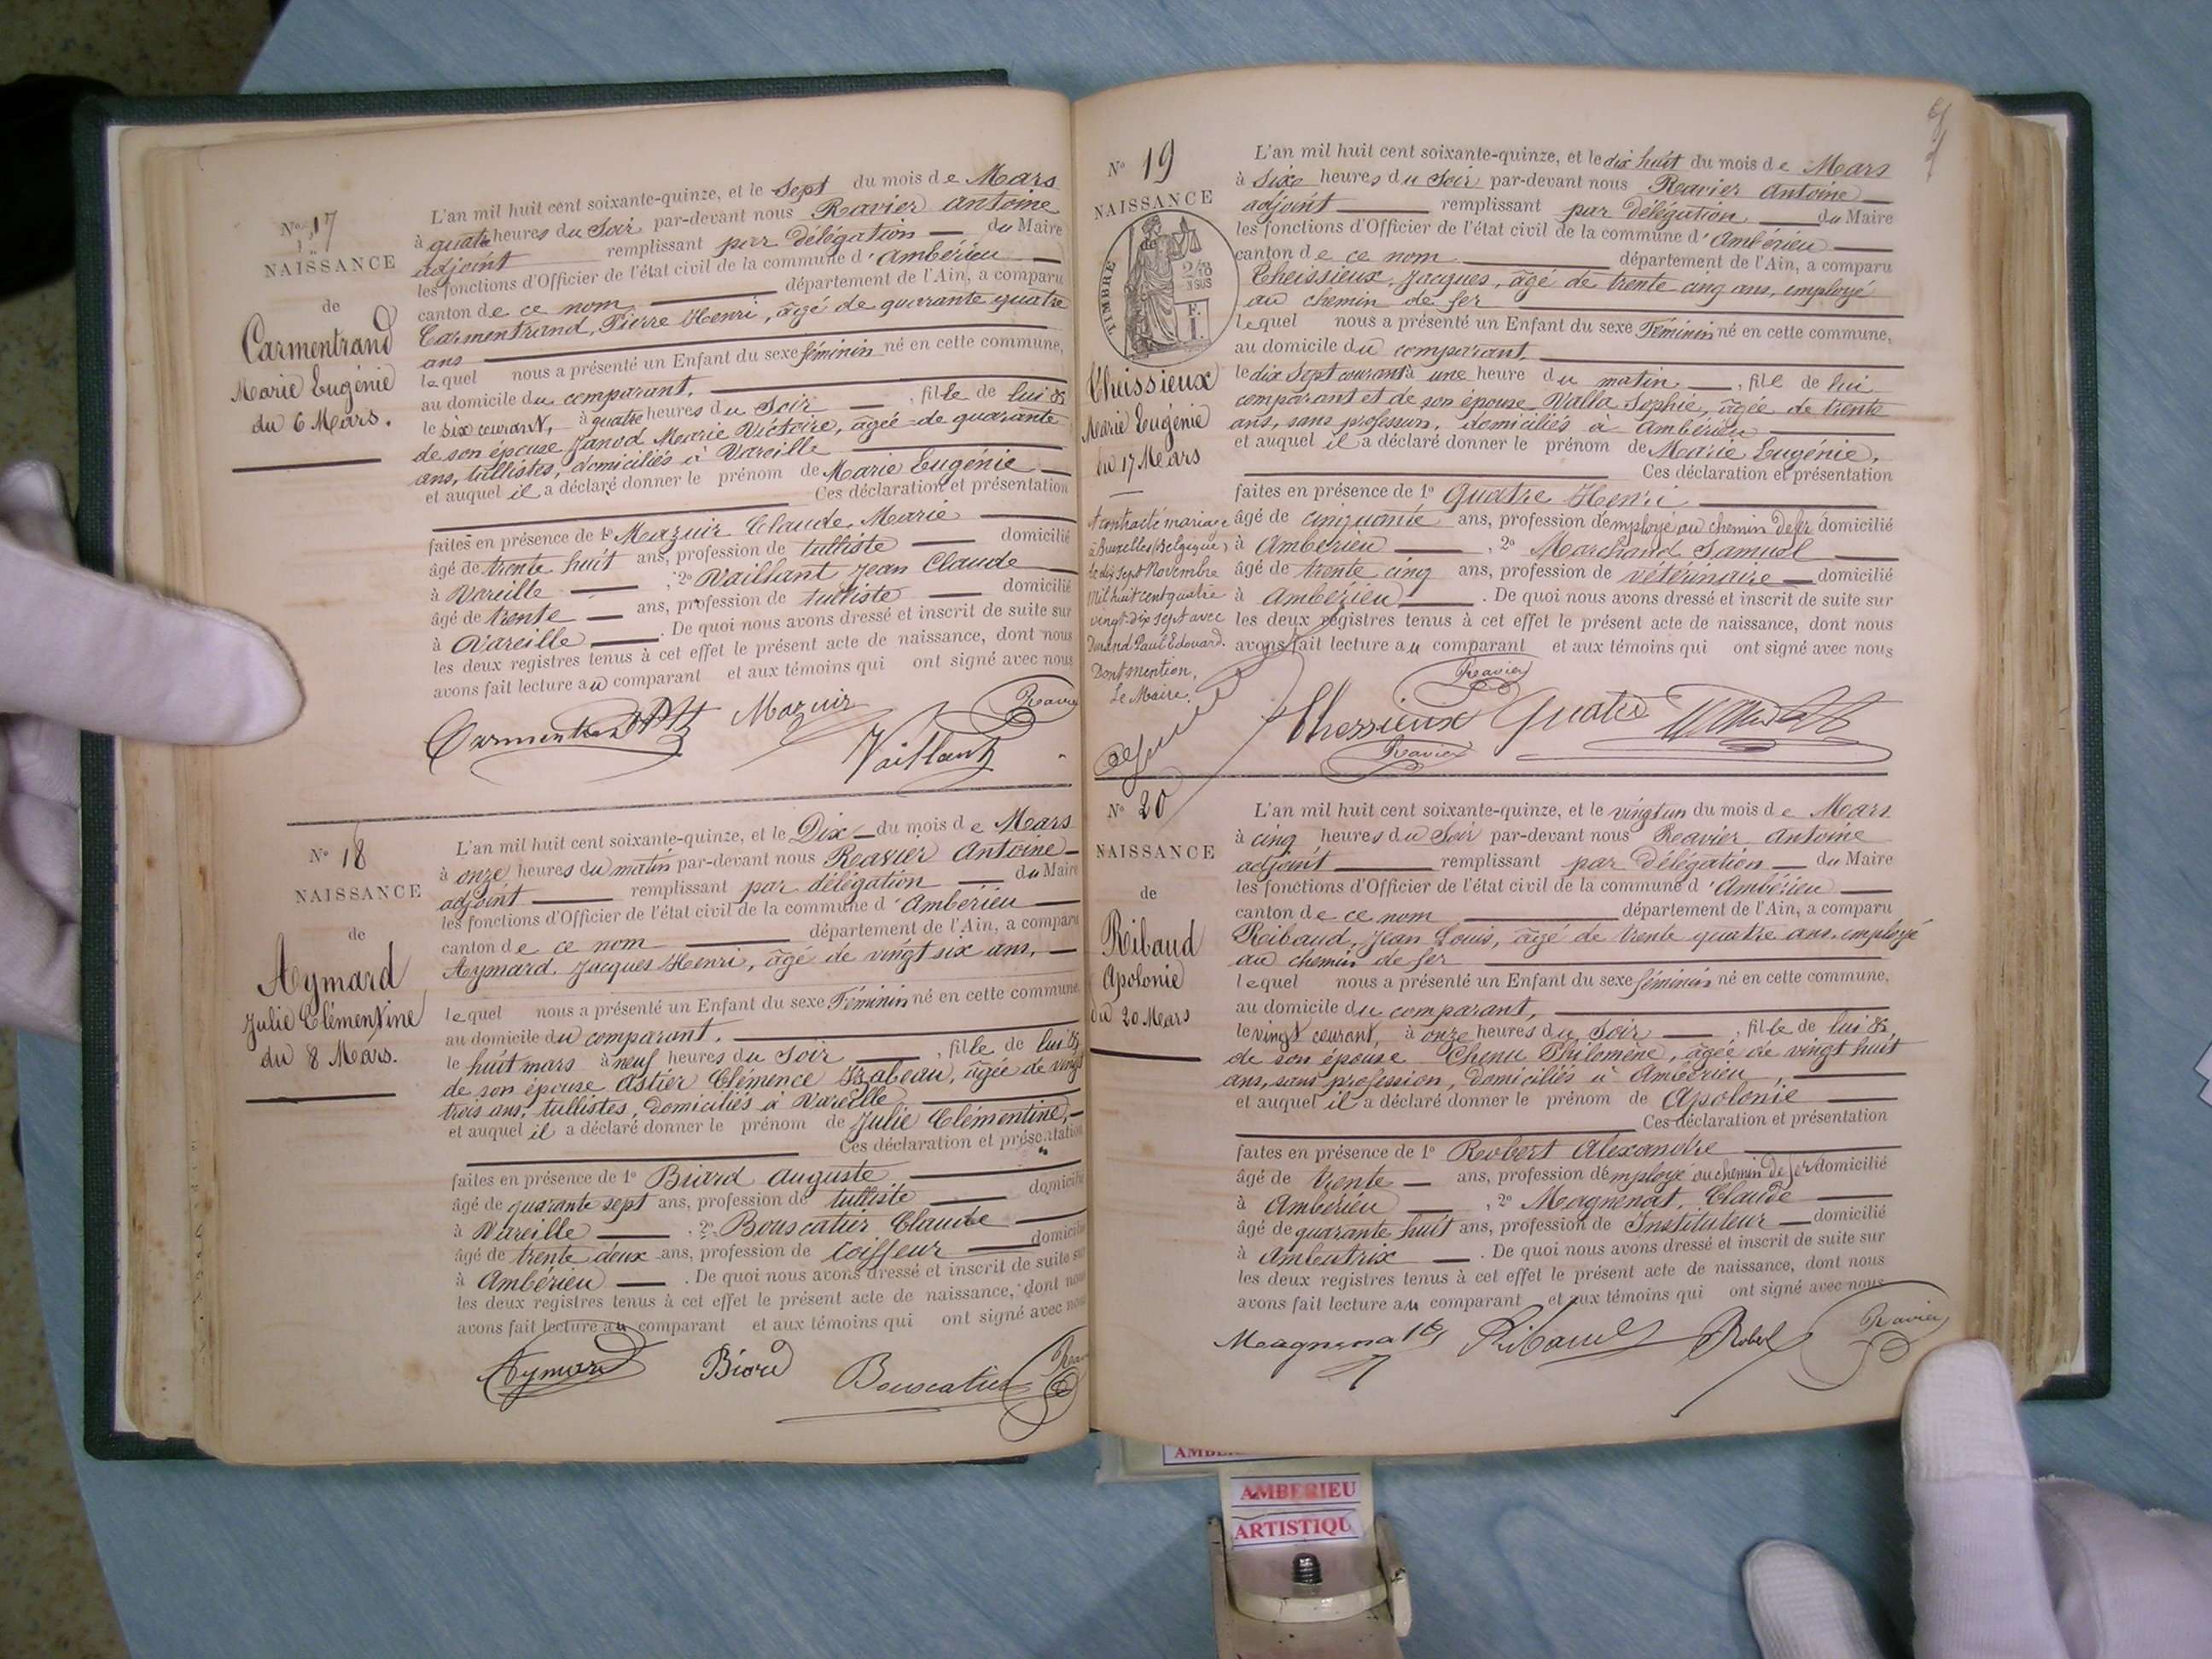 N° 17
NAISSANCE
de
Carmentrand
Marie Eugénie
du 6 Mars.
L'an mil huit cent soixante-quinze, et le Sept du mois de Mars
à quatre heures du Soir par-devant nous Ravier Antoine
adjoint remplissant par délégation du Maire
les fonctions d'Officier de l'état civil de la commune d'Ambérieu
canton de ce nom département de l'Ain, a comparu
Carmentrand, Pierre Henri, âgé de quarante quatre
ans
lequel nous a présenté un Enfant du sexe féminin né en cette commune,
au domicile du comparant.
le six courant, à quatre heures du Soir, fille de lui &
de son épouse Janod Marie Victoire, agée de quarante
ans, tullistes, domiciliés à Vareille
et auquel il a déclaré donner le prénom de Marie Eugénie
Ces déclaration et présentation
faites en présence de 1° Mazuir Claude, Marie
âgé de trente huit ans, profession de tulliste domicilié
à Vareille, 2° Vaillant Jean Claude
âgé de trente ans, profession de tulliste domicilié
à Vareille. De quoi nous avons dressé et inscrit de suite sur
les deux registres tenus à cet effet le présent acte de naissance, dont nous
avons fait lecture au comparant et aux témoins qui ont signé avec nous
Mazuir Ravier
Vaillant
N° 18
NAISSANCE
de
Aymard
Julie Clémentine
du 8 Mars.
L'an mil huit cent soixante-quinze, et le Dix du mois de Mars
à onze heures du matin par-devant nous Ravier Antoine
adjoint remplissant par délégation du Maire
les fonctions d'Officier de l'état civil de la commune d'Ambérieu
canton de ce nom département de l'Ain, a comparu
Aymard, Jacques Henri, âgé de vingt six ans,
lequel nous a présenté un Enfant du sexe Féminin né en cette commune
au domicile du comparant.
le huit mars à neuf heures du Soir, fille de lui &
de son épouse Astier Clémence Izabeau, agée de vingt
trois ans, tullistes, domiciliés à Vareille
et auquel il a déclaré donner le prénom de Julie Clémentine,
Ces déclaration et présentation
faites en présence de 1° Biard Auguste
âgé de quarante sept ans, profession de tulliste domicilié
à Vareille, 2° Bouscatier Claude
âgé de trente deux ans, profession de Coiffeur domicilié
à Ambérieu. De quoi nous avons dressé et inscrit de suite sur
les deux registres tenus à cet effet le présent acte de naissance, dont nous
avons fait lecture au comparant et aux témoins qui ont signé avec nous
Aymard Biard Bouscatier
N° 19
NAISSANCE
TIMBRE
Cheissieux
Marie Eugénie
du 17 Mars
A contracté mariage
à Bruxelles (Belgique)
le dix sept Novembre
mil huit cent quatre
vingt dix sept avec
Durand Paul Edouard.
Dont mention,
Le Maire.
L'an mil huit cent soixante-quinze, et le dix huit du mois de Mars
à Six heures du Soir par-devant nous Ravier Antoine
adjoint remplissant par délégation du Maire
les fonctions d'Officier de l'état civil de la commune d'Ambérieu
canton de ce nom département de l'Ain, a comparu
Cheissieux, Jacques, âgé de trente cinq ans, employé
au chemin de fer
lequel nous a présenté un Enfant du sexe Féminin né en cette commune,
au domicile du comparant,
le dix Sept courant à une heure du matin, fille de lui
comparant et de son épouse Valla Sophie, âgée de trente
ans, sans profession, domiciliés à Ambérieu
et auquel il a déclaré donner le prénom de Marie Eugénie.
Ces déclaration et présentation
faites en présence de 1° Quatre Henri
âgé de cinquante ans, profession d'employé au chemin de fer domicilié
à Ambérieu, 2° Marchand Samuel
âgé de trente cinq ans, profession de vétérinaire domicilié
à Ambérieu. De quoi nous avons dressé et inscrit de suite sur
les deux registres tenus à cet effet le présent acte de naissance, dont nous
avons fait lecture au comparant et aux témoins qui ont signé avec nous
Ravier
Chessieux Quatre
Ravier
N° 20
NAISSANCE
de
Ribaud
Apolonie
du 20 Mars
L'an mil huit cent soixante-quinze, et le vingt un du mois de Mars
à cinq heures du Soir par-devant nous Ravier Antoine
adjoint remplissant par délégation du Maire
les fonctions d'Officier de l'état civil de la commune d'Ambérieu
canton de ce nom département de l'Ain, a comparu
Ribaud, Jean Louis, âgé de trente quatre ans, employé
au chemin de fer
lequel nous a présenté un Enfant du sexe féminin né en cette commune,
au domicile du comparant,
le vingt courant, à onze heures du Soir, fille de lui &
de son épouse Chenu Philomène, agée de vingt huit
ans, sans profession, domiciliés à Ambérieu,
et auquel il a déclaré donner le prénom de Apolonie
Ces déclaration et présentation
faites en présence de 1° Robert Alexandre
âgé de trente ans, profession d'employé au chemin de fer domicilié
à Ambérieu, 2° Magnenat, Claude
âgé de quarante huit ans, profession de Instituteur domicilié
à Ambutrix. De quoi nous avons dressé et inscrit de suite sur
les deux registres tenus à cet effet le présent acte de naissance, dont nous
avons fait lecture au comparant et aux témoins qui ont signé avec nous
Magnenat Ribaud Robert Ravier
AMBERIEU
ARTISTIQU